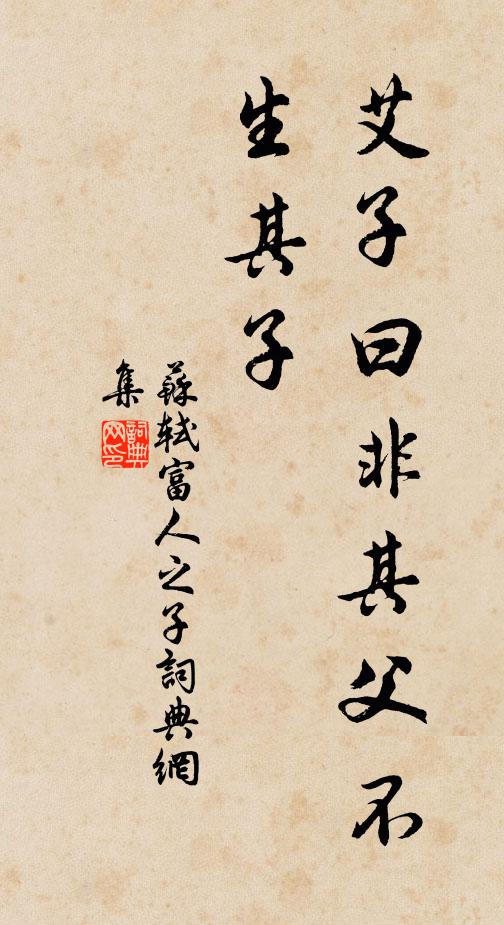 艾子曰非其父不
生其子
蘇軾富人之子詞典網
集
詞典
网印